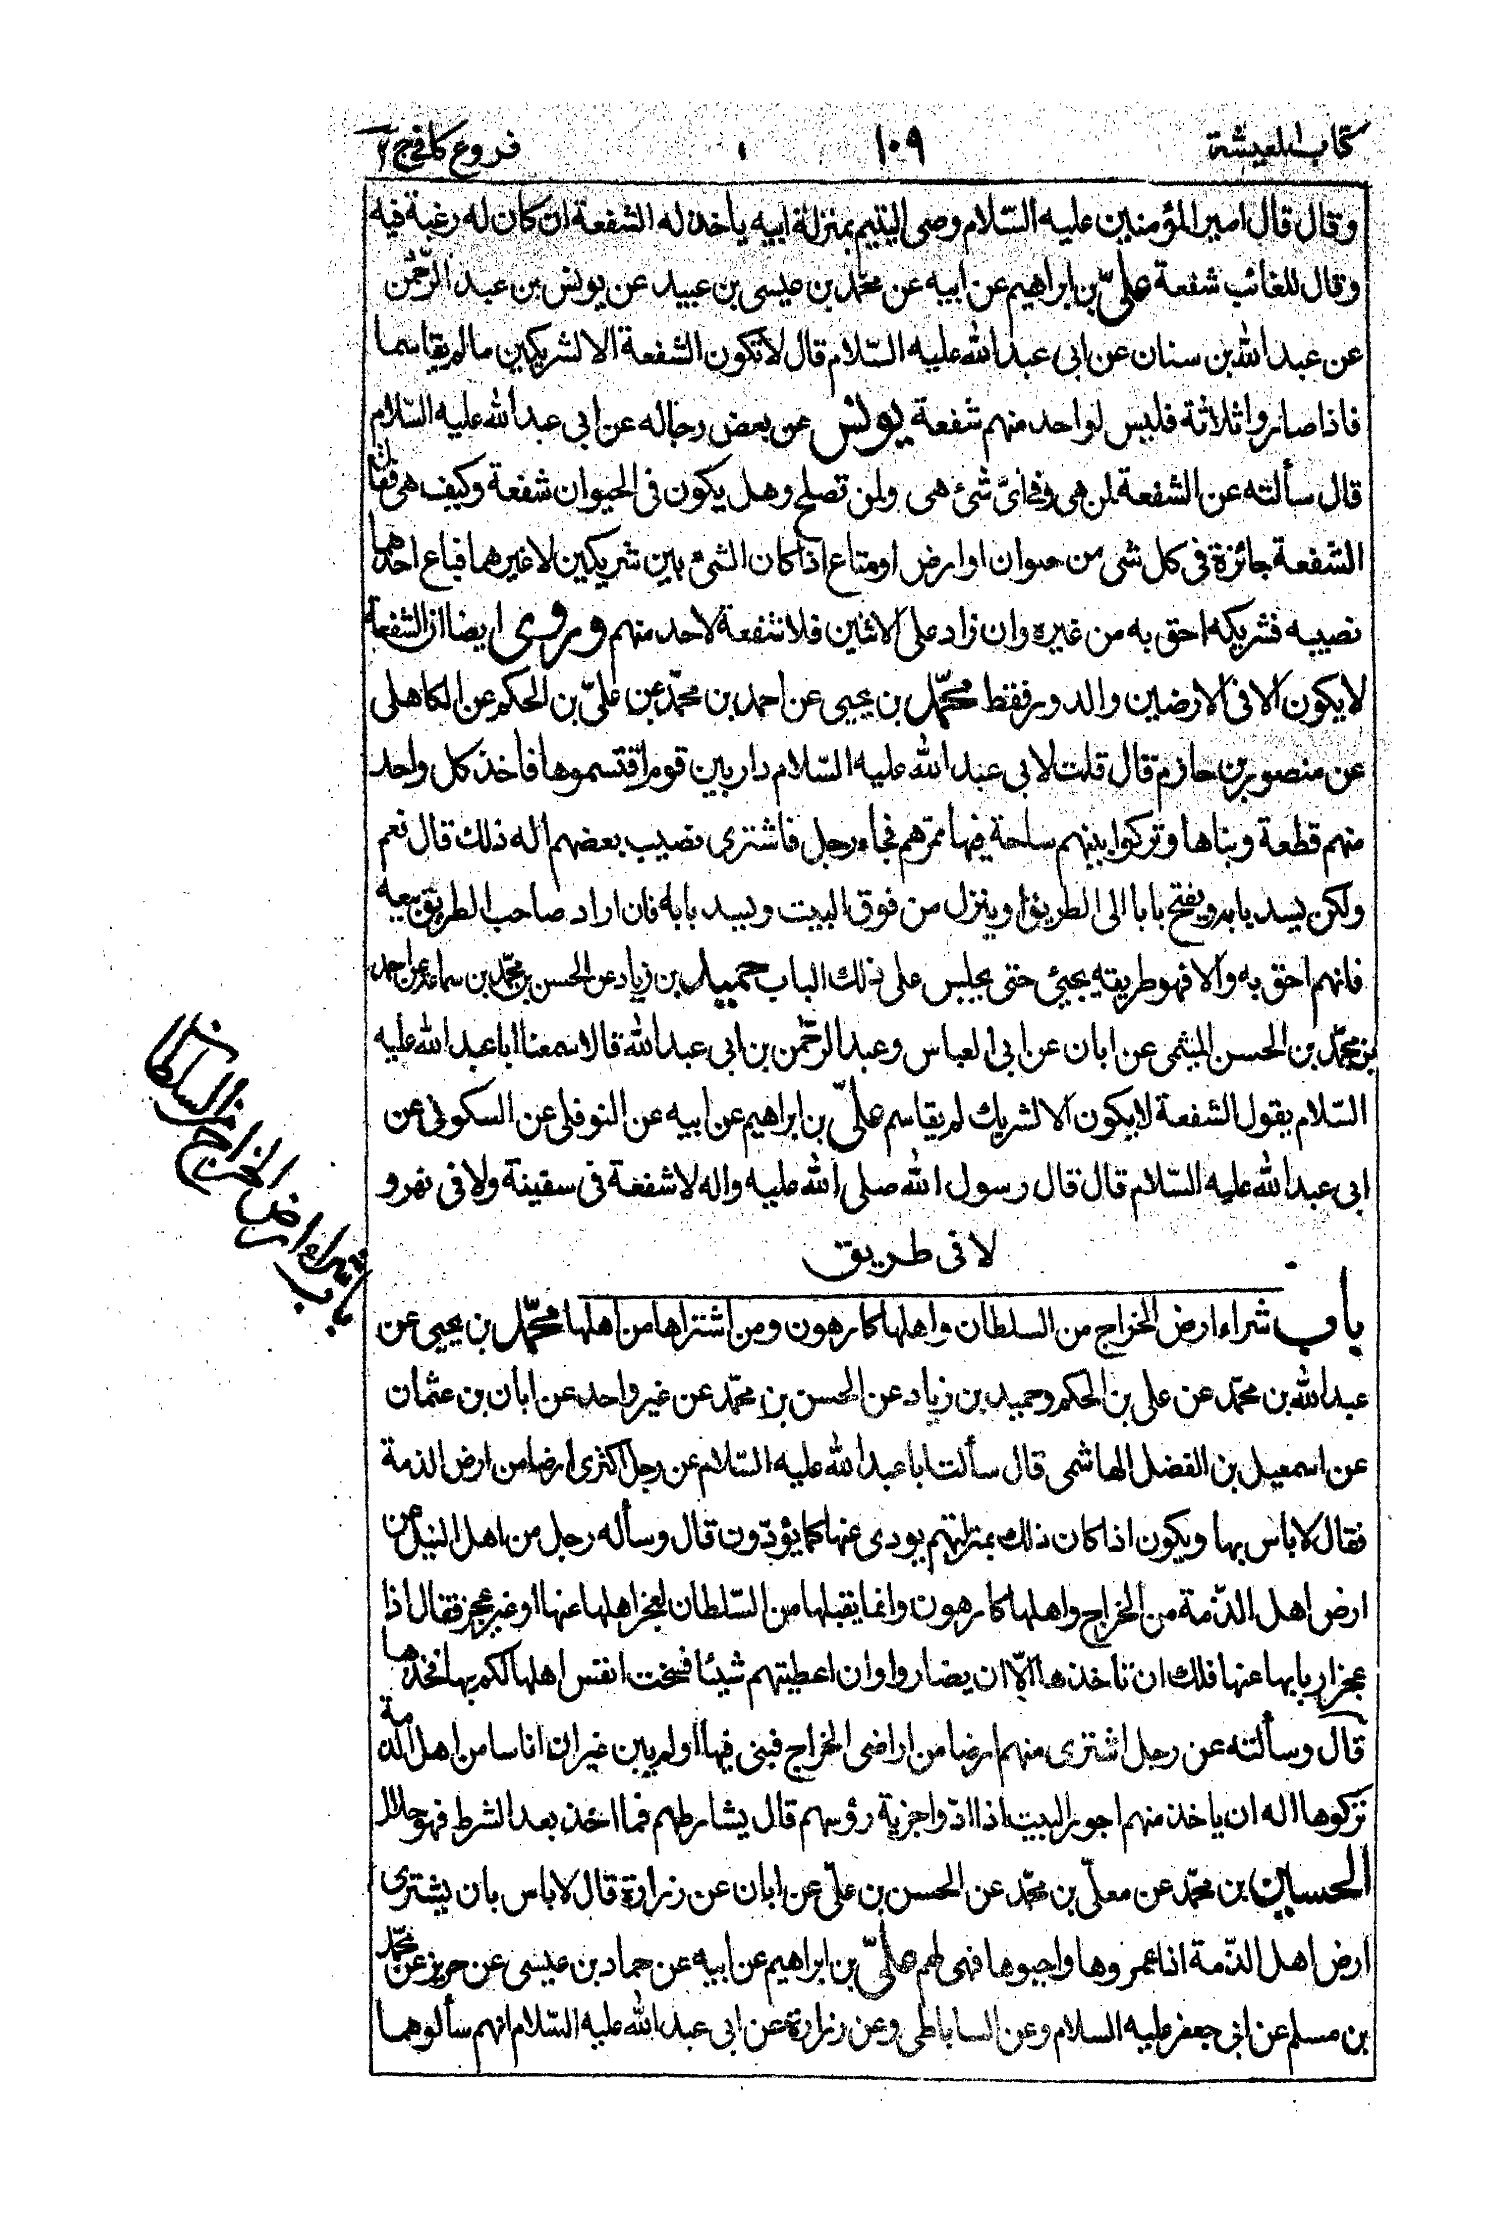 كتاب المعيشة ١٠٩ فروع كافى ج ٢
وقال قال امير المؤمنين عليه السّلام وصى اليتيم بمنزلة ابيه ياخذ له الشفعة ان كان له رغبة فيه
وقال للغائب شفعة علىّ بن ابراهيم عن ابيه عن محمّد بن عيسى بن عبيد عن يونس بن عبد الرّحمٰن
عن عبد الله بن سنان عن ابى عبد الله عليه السّلام قال لا تكون الشفعة الا لشريكين ما لم يقاسما
فاذا صاروا ثلاثة فليس لواحد منهم شفعة يونس عن بعض رجاله عن ابى عبد الله عليه السّلام
قال سألته عن الشفعة لمن هى وفى اىّ شئ هى ولمن تصلح وهل يكون فى الحيوان شفعة وكيف هى فقال
الشّفعة جائزة فى كل شى من حيوان او ارض او متاع اذا كان الشئ بين شريكين لا غيرهما فباع احدهما
نصيبه فشريكه احق به من غيره وان زاد على الاثنين فلا شفعة لاحد منهم وروى ايضا ان الشفعة
لا يكون الا فى الارضين والدور فقط محمّد بن يحيى عن احمد بن محمّد عن علىّ بن الحكم عن الكاهلى
عن منصور بن حازم قال قلت لابى عبد الله عليه السّلام دار بين قوم اقتسموها فأخذ كل واحد
منهم قطعة وبناها وتركوا بينهم ساحة فيها ممرّهم فجاء رجل فاشترى نصيب بعضهم اله ذلك قال نعم
ولكن يسد بابه ويفتح بابا الى الطريق او ينزل من فوق البيت ويسد بابه فان اراد صاحب الطريق بيعه
فانهم احق به والا فهو طريقه يجيئ حتى يجلس على ذلك الباب حميد بن زياد عن الحسن بن محمّد بن سماعة عن احمد
بن محمّد بن الحسن الميثمى عن ابان عن ابى العباس وعبد الرّحمٰن بن ابى عبد الله قالا سمعنا ابا عبد الله عليه
السّلام يقول الشفعة لا يكون الا لشريك لم يقاسم علىّ بن ابراهيم عن ابيه عن النوفلى عن السكونى عن
ابى عبد الله عليه السّلام قال قال رسول الله صلى الله عليه واله لا شفعة فى سفينة ولا فى نهر و
لا فى طريق
باب شراء ارض الخراج من السلطان
باب شراء ارض الخراج من السلطان واهلها كارهون ومن اشتراها من اهلها محمّد بن يحيى عن
عبد الله بن محمّد عن على بن الحكم وحميد بن زياد عن الحسن بن محمّد عن غير واحد عن ابان بن عثمان
عن اسمعيل بن الفضل الهاشمى قال سألت ابا عبد الله عليه السّلام عن رجل اكترى ارضا من ارض الذمة
فقال لا باس بها ويكون اذا كان ذلك بمنزلتهم يودى عنها كما يؤدّون قال وسأله رجل من اهل النيل عن
ارض اهل الذّمة من الخراج واهلها كارهون وانما يقبلها من السّلطان لعجز اهلها عنها او غير عجز فقال اذا
عجز اربابها عنها فلك ان تاخذها الّا ان يضاروا وان اعطيتهم شيئا فسخت انفس اهلها لكم بها فخذها
قال وسألته عن رجل اشترى منهم ارضا من اراضى الخراج فبنى فيها او لم يبن غير ان اناسا من اهل الذمة
نزلوها اله ان ياخذ منهم اجور البيت اذا ادّوا جزية رؤسهم قال يشارطهم فما اخذ بعد الشرط فهو حلال
الحسين بن محمّد عن معلّى بن محمّد عن الحسن بن علىّ عن ابان عن زرارة قال لا باس بان يشترى
ارض اهل الذّمة اذا عمروها واحيوها فهى لهم علىّ بن ابراهيم عن ابيه عن حماد بن عيسى عن حريز عن محمّد
بن مسلم عن ابى جعفر عليه السلام وعن الساباطى وعن زرارة عن ابى عبد الله عليه السّلام انهم سألوهما